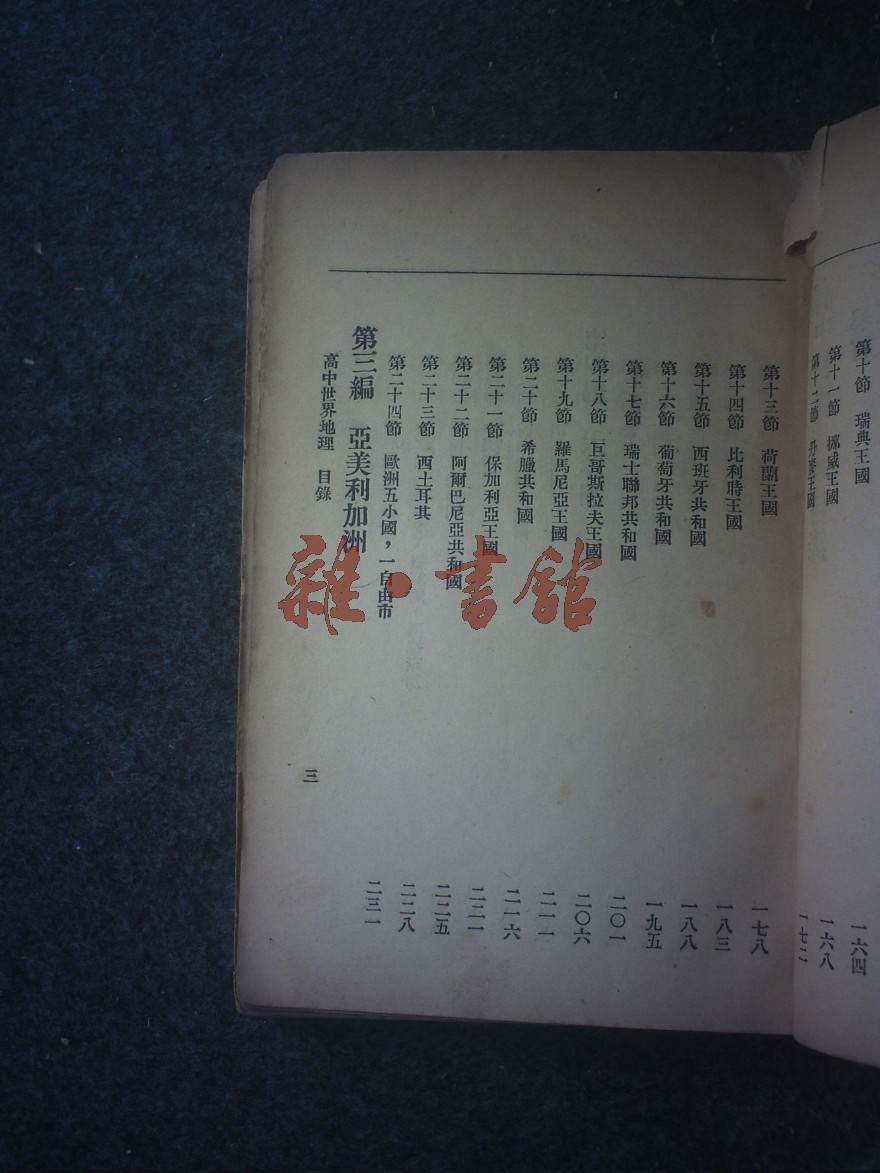 第十節 瑞典王國 一六四
第十一節 挪威王國 一六八
第十二節 丹麥王國 一七二
第十三節 荷蘭王國 一七八
第十四節 比利時王國 一八三
第十五節 西班牙共和國 一八八
第十六節 葡萄牙共和國 一九五
第十七節 瑞士聯邦共和國 二〇一
第十八節 巨哥斯拉夫王國 二〇六
第十九節 羅馬尼亞王國 二一一
第二十節 希臘共和國 二一六
第二十一節 保加利亞王國 二二一
第二十二節 阿爾巴尼亞共和國 二二五
第二十三節 西土耳其 二二八
第二十四節 歐洲五小國，一自由市 二三一
第三編 亞美利加洲
高中世界地理 目錄 三
雜·書館